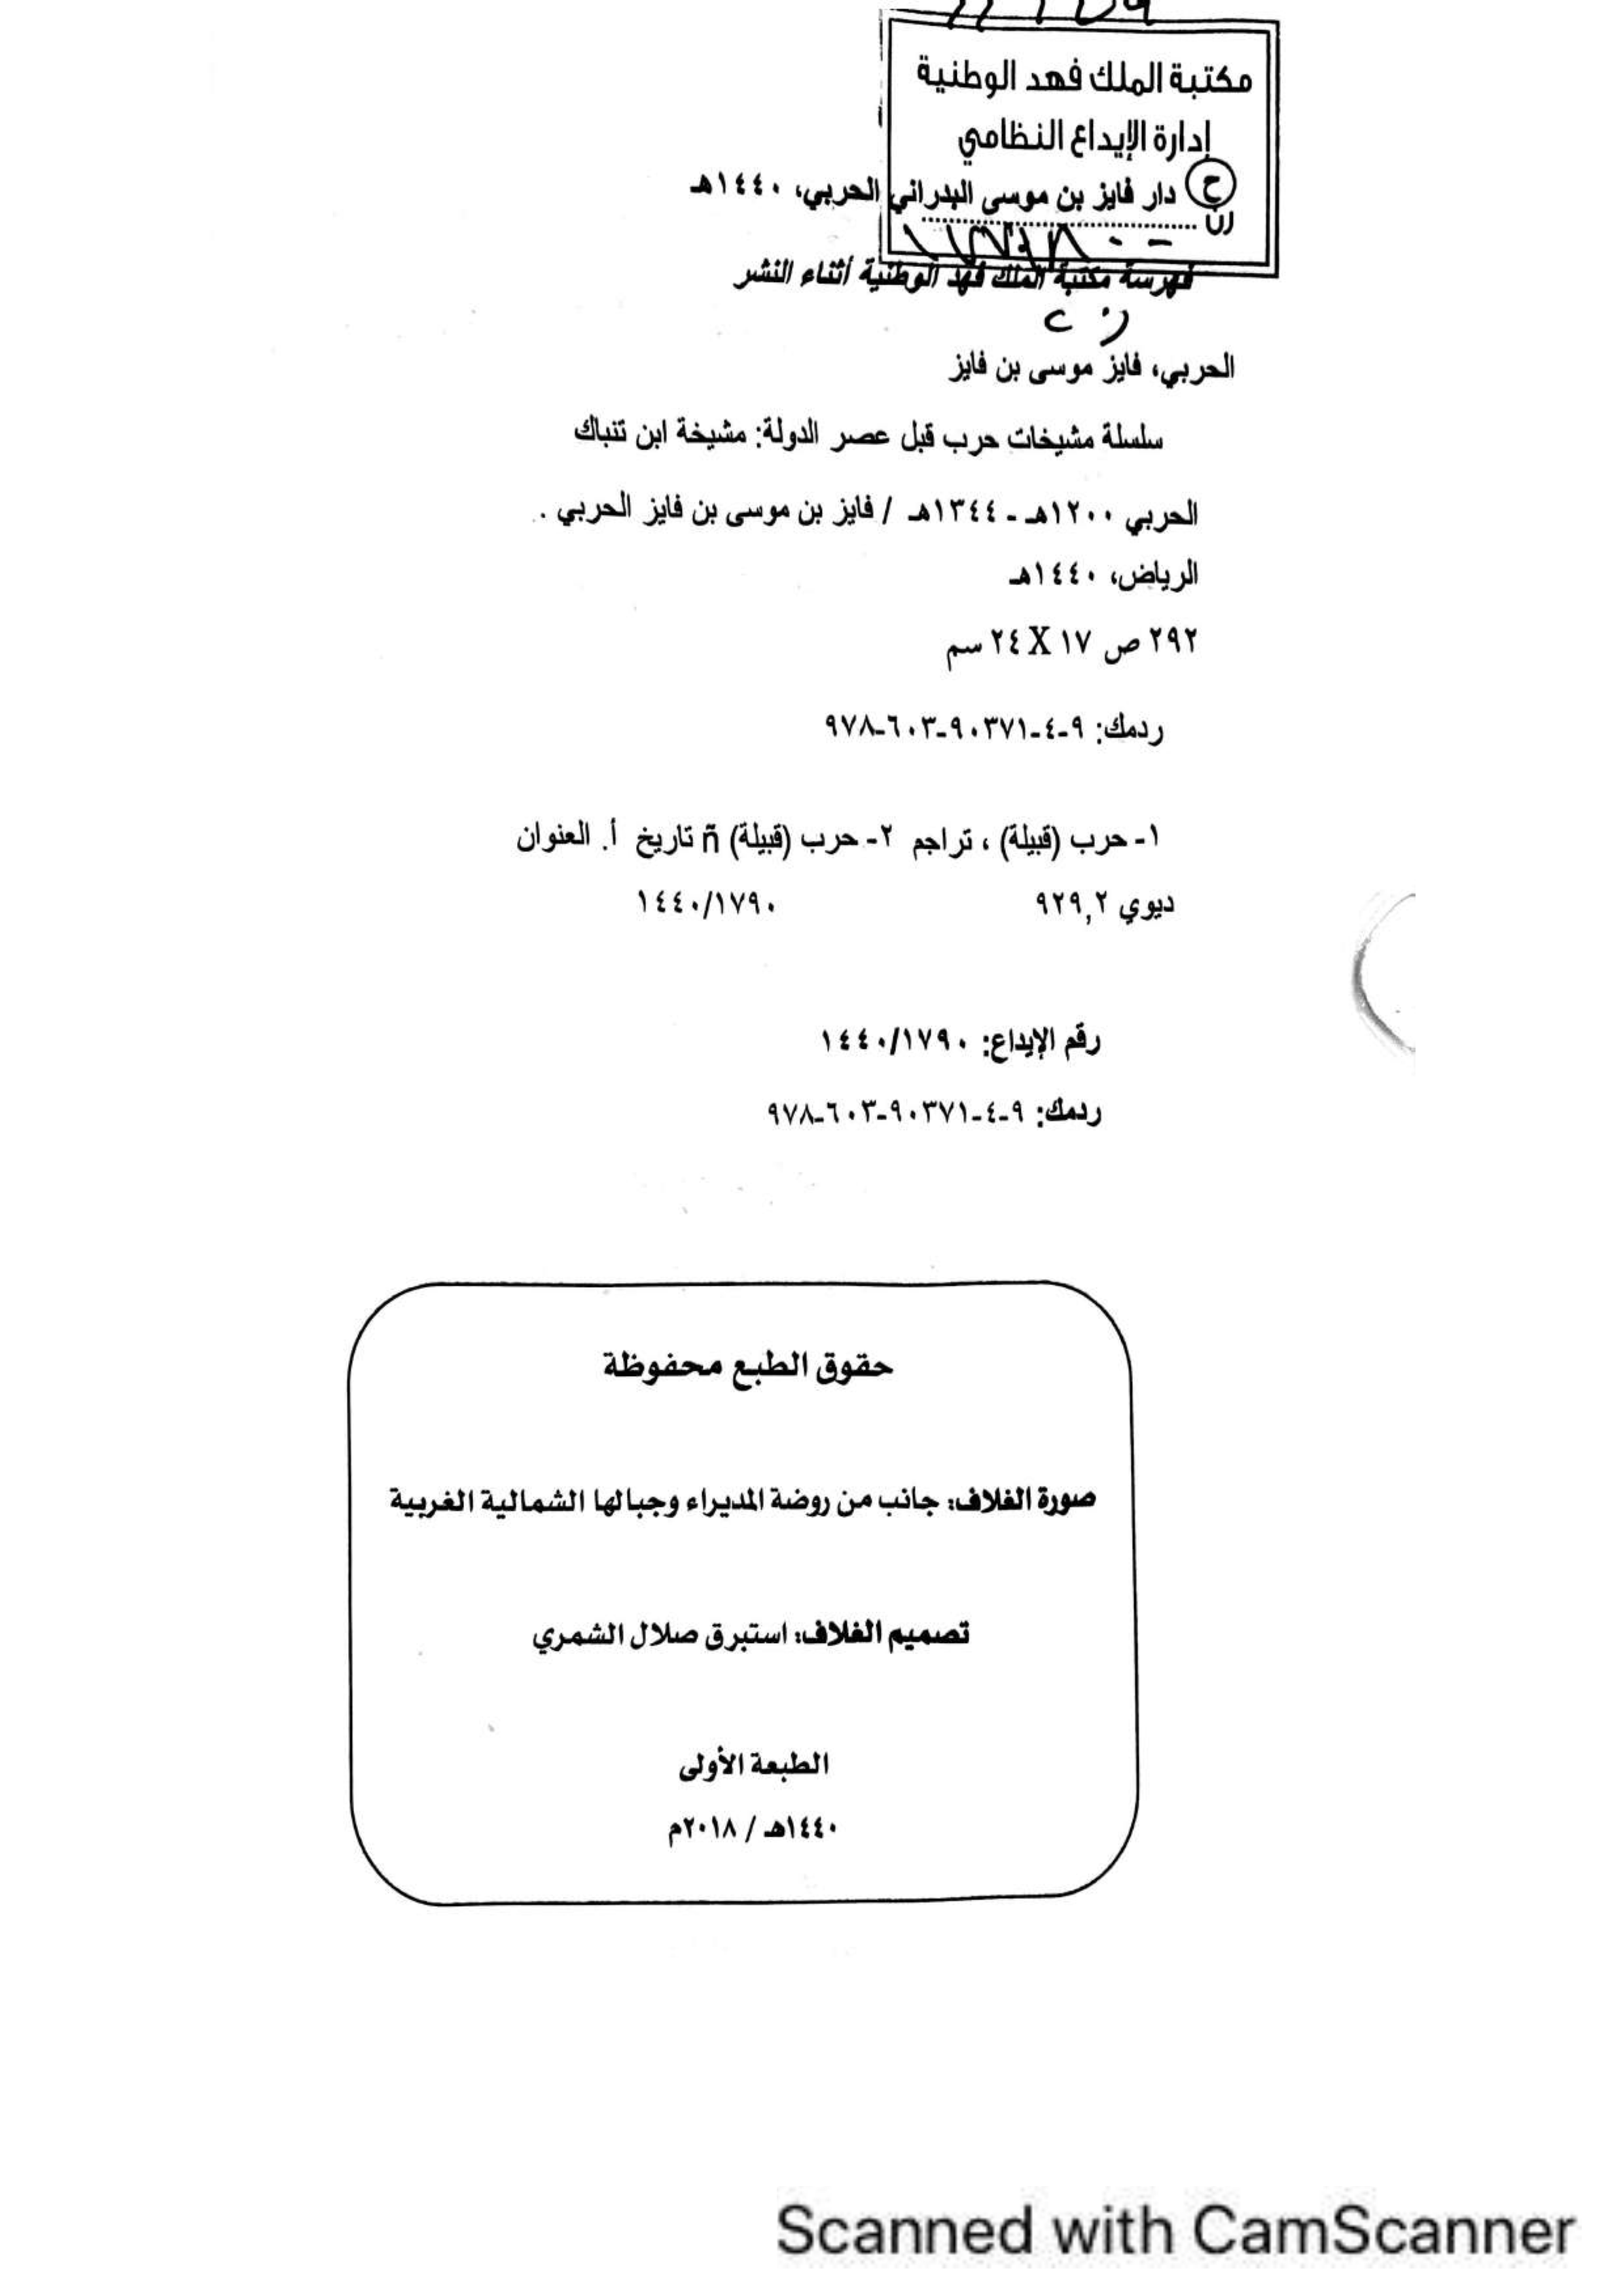 مكتبة الملك فهد الوطنية
إدارة الإيداع النظامي
ح دار فايز بن موسى البدراني الحربي، ١٤٤٠هـ
فهرسة مكتبة الملك فهد الوطنية أثناء النشر
الحربي، فايز موسى بن فايز
سلسلة مشيخات حرب قبل عصر الدولة: مشيخة ابن تنباك
الحربي ١٢٠٠هـ - ١٣٤٤هـ / فايز بن موسى بن فايز الحربي .
الرياض، ١٤٤٠هـ
٢٩٢ ص ١٧ X ٢٤ سم
ردمك: ٩-٤-٩٠٣٧١-٦٠٣-٩٧٨
١- حرب (قبيلة) ، تراجم ٢- حرب (قبيلة) ñ تاريخ أ. العنوان
ديوي ٩٢٩,٢ ١٤٤٠/١٧٩٠
رقم الإيداع: ١٤٤٠/١٧٩٠
ردمك: ٩-٤-٩٠٣٧١-٦٠٣-٩٧٨
حقوق الطبع محفوظة
صورة الغلاف: جانب من روضة المديراء وجبالها الشمالية الغربية
تصميم الغلاف: استبرق صلال الشمري
الطبعة الأولى
١٤٤٠هـ / ٢٠١٨م
Scanned with CamScanner